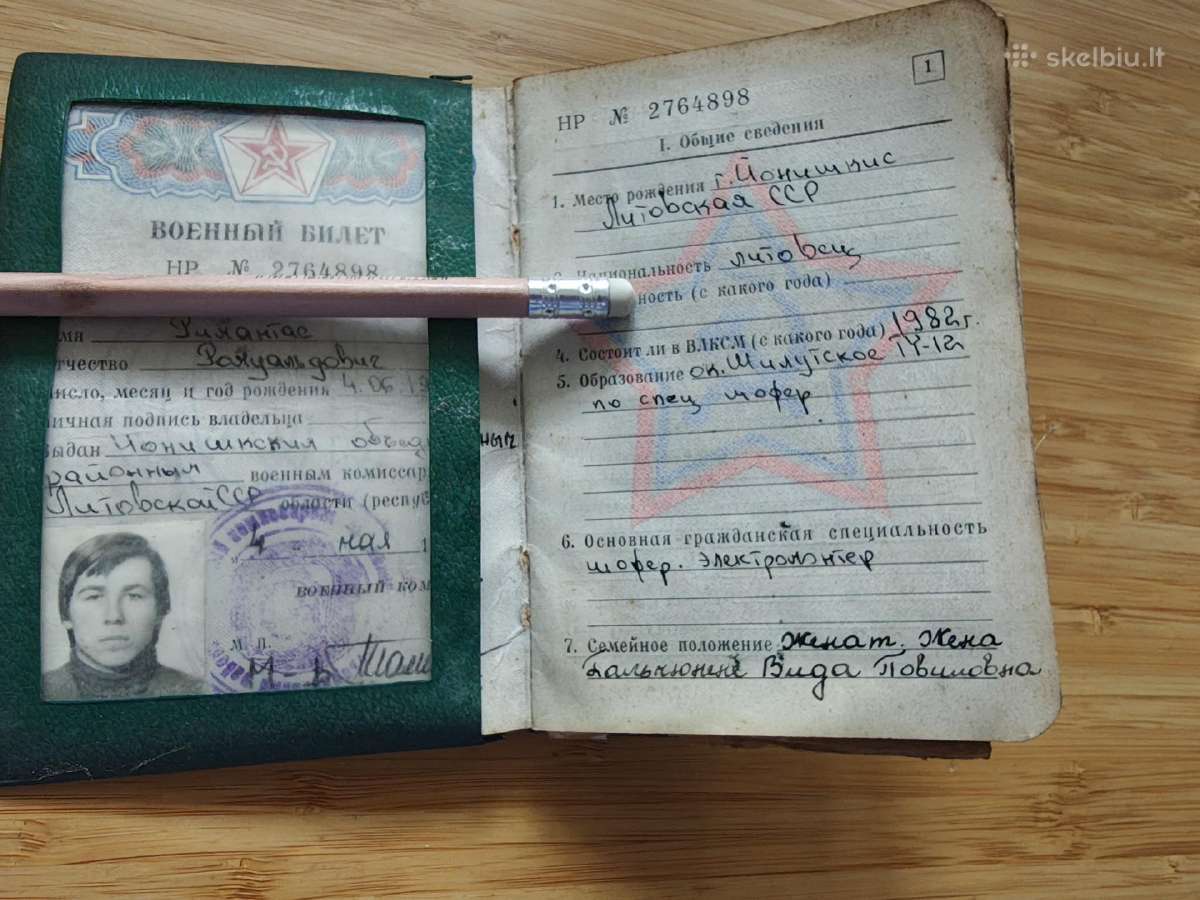 skelbiu.lt
ВОЕННЫЙ БИЛЕТ
НР № 2764898
мя Римантас
тчество Ромуальдович
исло, месяц и год рождения 4.06 19
ичная подпись владельца
ыдан Ионишкския объед
районным военным комиссар
Литовской ССР области (респу
4 мая 1
военный ком
М. П.
1
НР № 2764898
I. Общие сведения
1. Место рождения г. Йонишкис
Литовская ССР
Национальность литовец
ность (с какого года)
4. Состоит ли в ВЛКСМ (с какого года) 1982 г.
5. Образование ок. Шилутское
по спец шофер
6. Основная гражданская специальность
шофер. электромонтер
7. Семейное положение женат, жена
Вида Повиловна